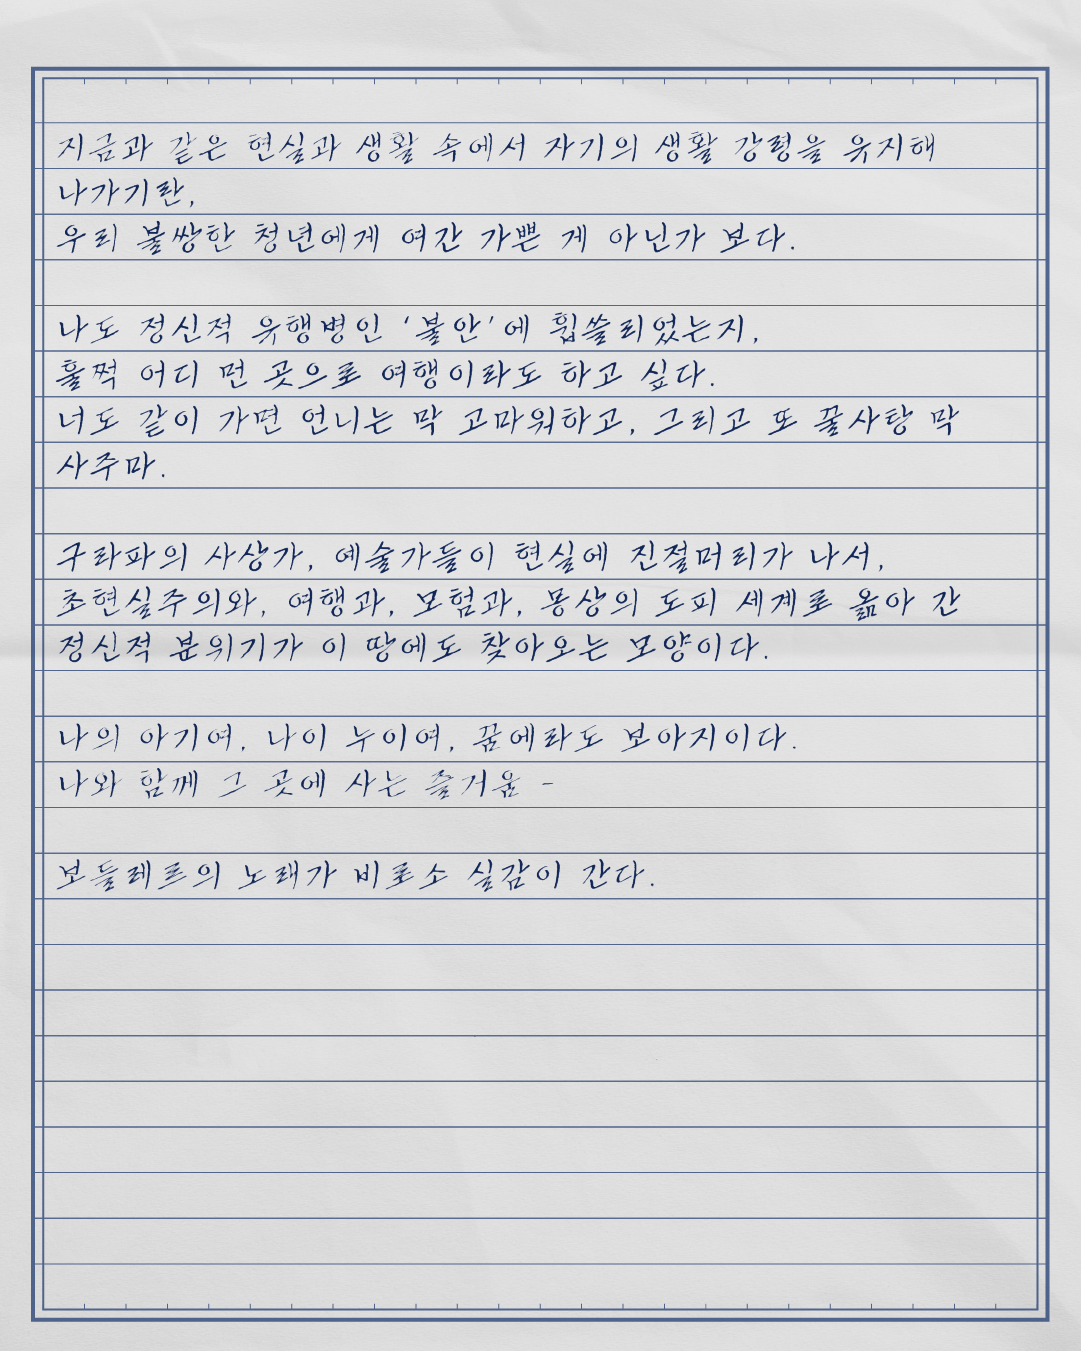 지금과 같은 현실과 생활 속에서 자기의 생활 강령을 유지해
나가기란,
우리 불쌍한 청년에게 여간 가쁜 게 아닌가 보다.
나도 정신적 유행병인 '불안'에 휩쓸리었는지,
훌쩍 어디 먼 곳으로 여행이라도 하고 싶다.
너도 같이 가면 언니는 막 고마워하고, 그리고 또 꿀사탕 막
사주마.
구라파의 사상가, 예술가들이 현실에 진절머리가 나서,
초현실주의와, 여행과, 모험과, 몽상의 도피 세계로 옮아 간
정신적 분위기가 이 땅에도 찾아오는 모양이다.
나의 아기여, 나이 누이여, 꿈에라도 보아지이다.
나와 함께 그 곳에 사는 즐거움 -
보들레르의 노래가 비로소 실감이 간다.